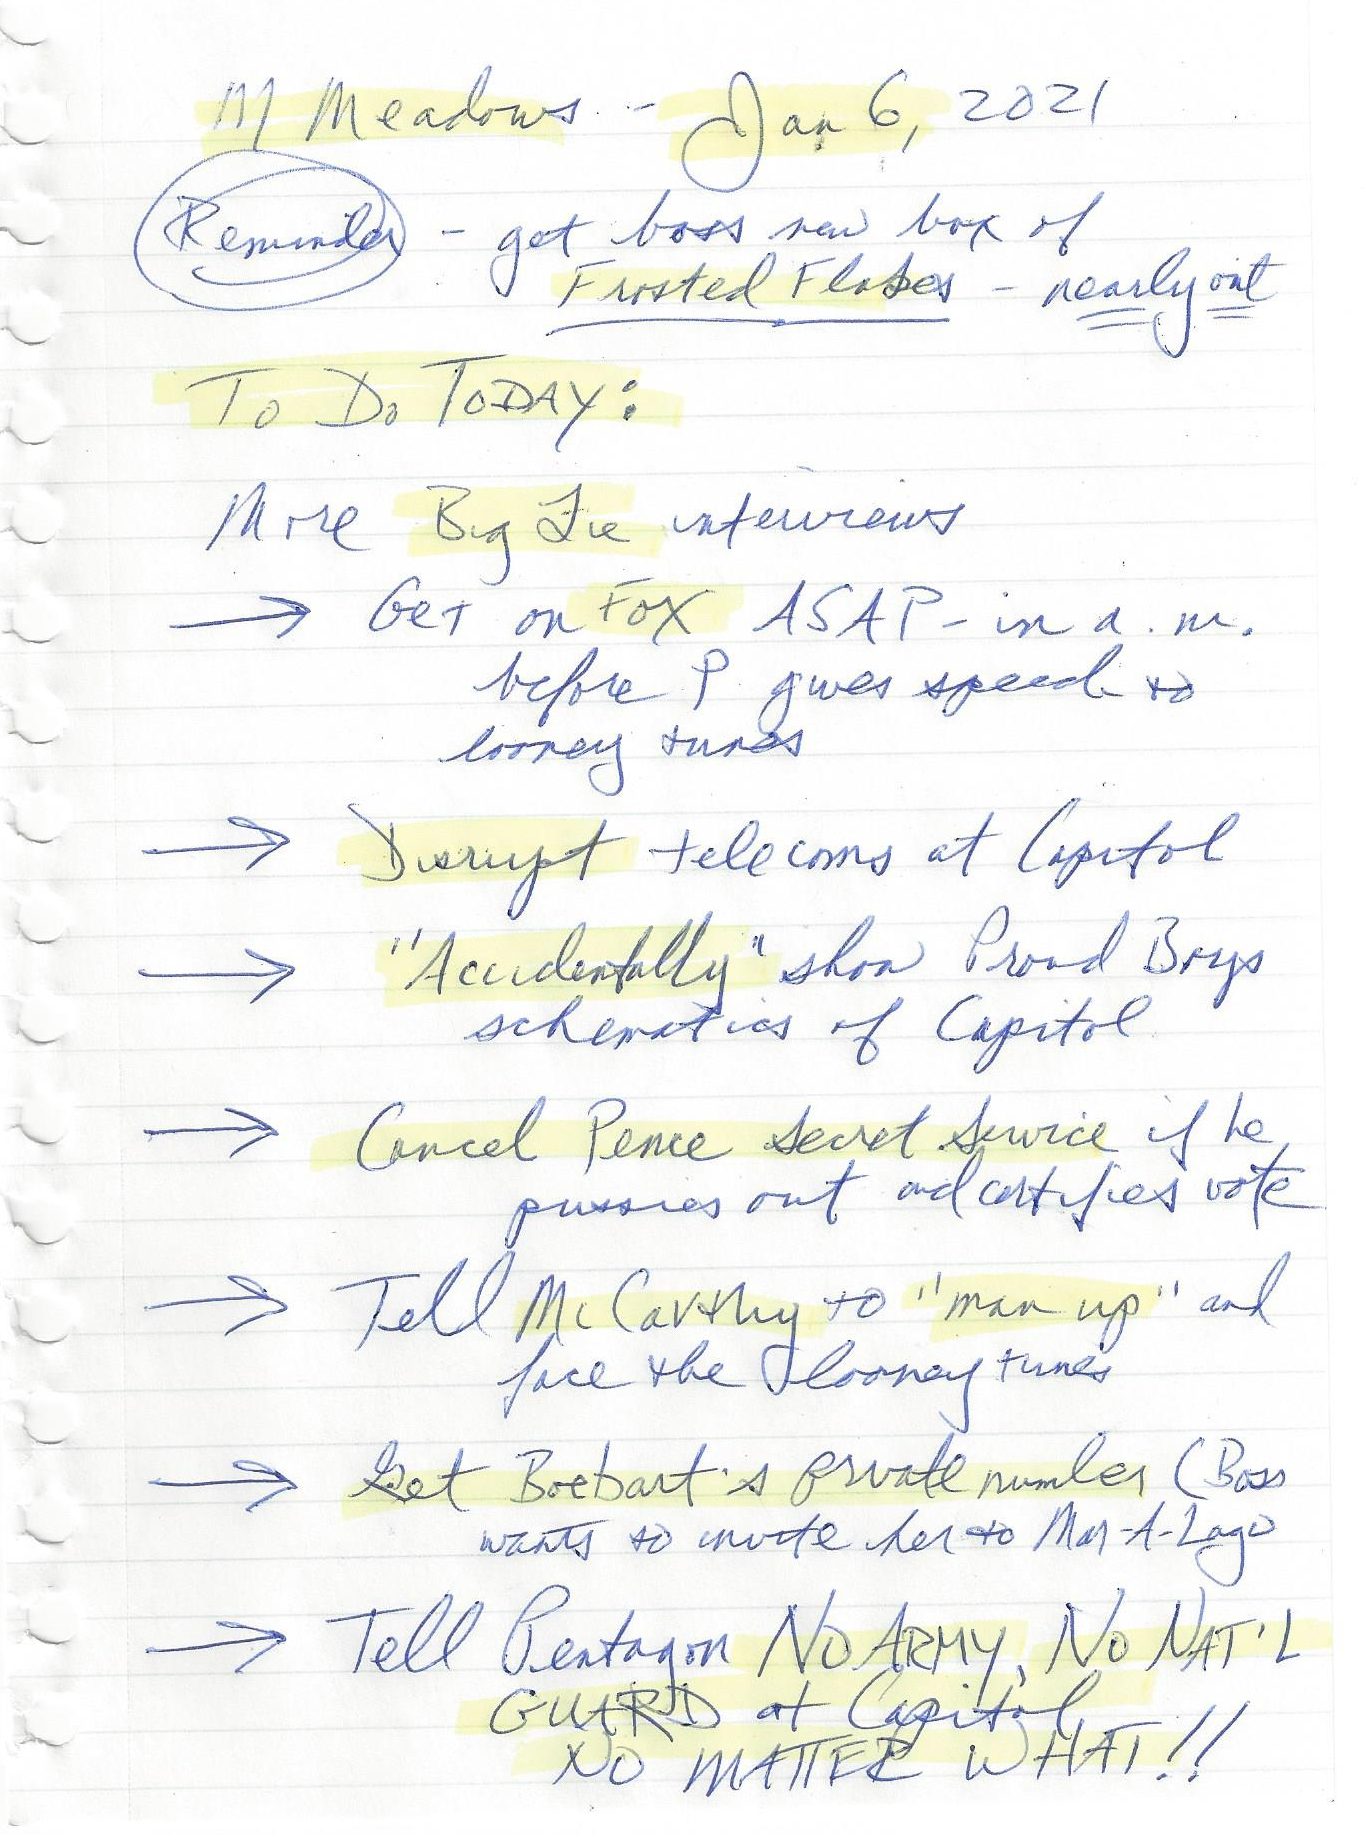 M Meadows - Jan 6, 2021
Reminder - get boss new box of
Frosted Flakes - nearly out
To Do TODAY:
More Big Lie interviews
→ Get on FOX ASAP - in a.m.
before P gives speech to
looney tunes
→ Disrupt telecoms at Capitol
→ "Accidentally" show Proud Boys
schematics of Capitol
→ Cancel Pence secret service if he
pussies out and certifies vote
→ Tell McCarthy to "man up" and
face the looney tunes
→ Get Boebart's private number (Boss
wants to invite her to Mar-A-Lago
→ Tell Pentagon NO ARMY, NO NAT'L
GUARD at Capitol
NO MATTER WHAT!!